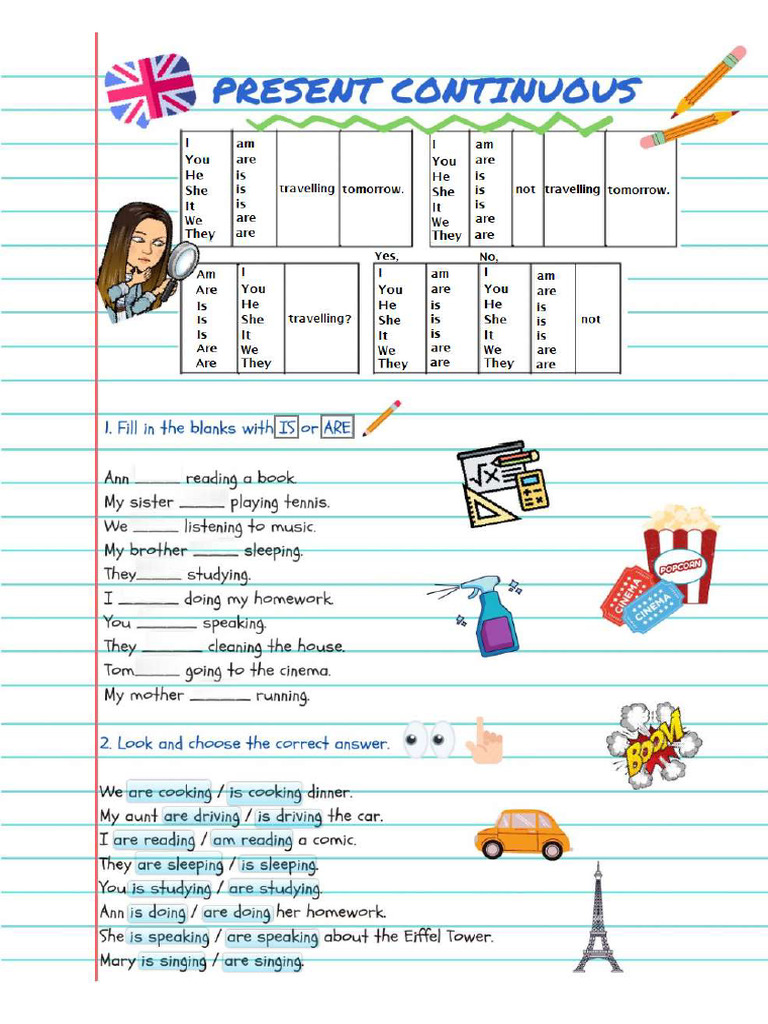 PRESENT CONTINUOUS
I am
You are
He is
She is travelling tomorrow.
It is
We are
They are
I am
You are
He is
She is not travelling tomorrow.
It is
We are
They are
Am I
Are You
Is He
Is She travelling?
Is It
Are We
Are They
Yes, No,
I am I am
You are You are
He is He is
She is She is not
It is It is
We are We are
They are They are
1. Fill in the blanks with IS or ARE
Ann _____ reading a book.
My sister _____ playing tennis.
We _____ listening to music.
My brother _____ sleeping.
They_____ studying.
I _______ doing my homework.
You _______ speaking.
They _______ cleaning the house.
Tom_____ going to the cinema.
My mother _______ running.
POPCORN
CINEMA
CINEMA
√x
2. Look and choose the correct answer.
BOOM
We are cooking / is cooking dinner.
My aunt are driving / is driving the car.
I are reading / am reading a comic.
They are sleeping / is sleeping.
You is studying / are studying.
Ann is doing / are doing her homework.
She is speaking / are speaking about the Eiffel Tower.
Mary is singing / are singing.